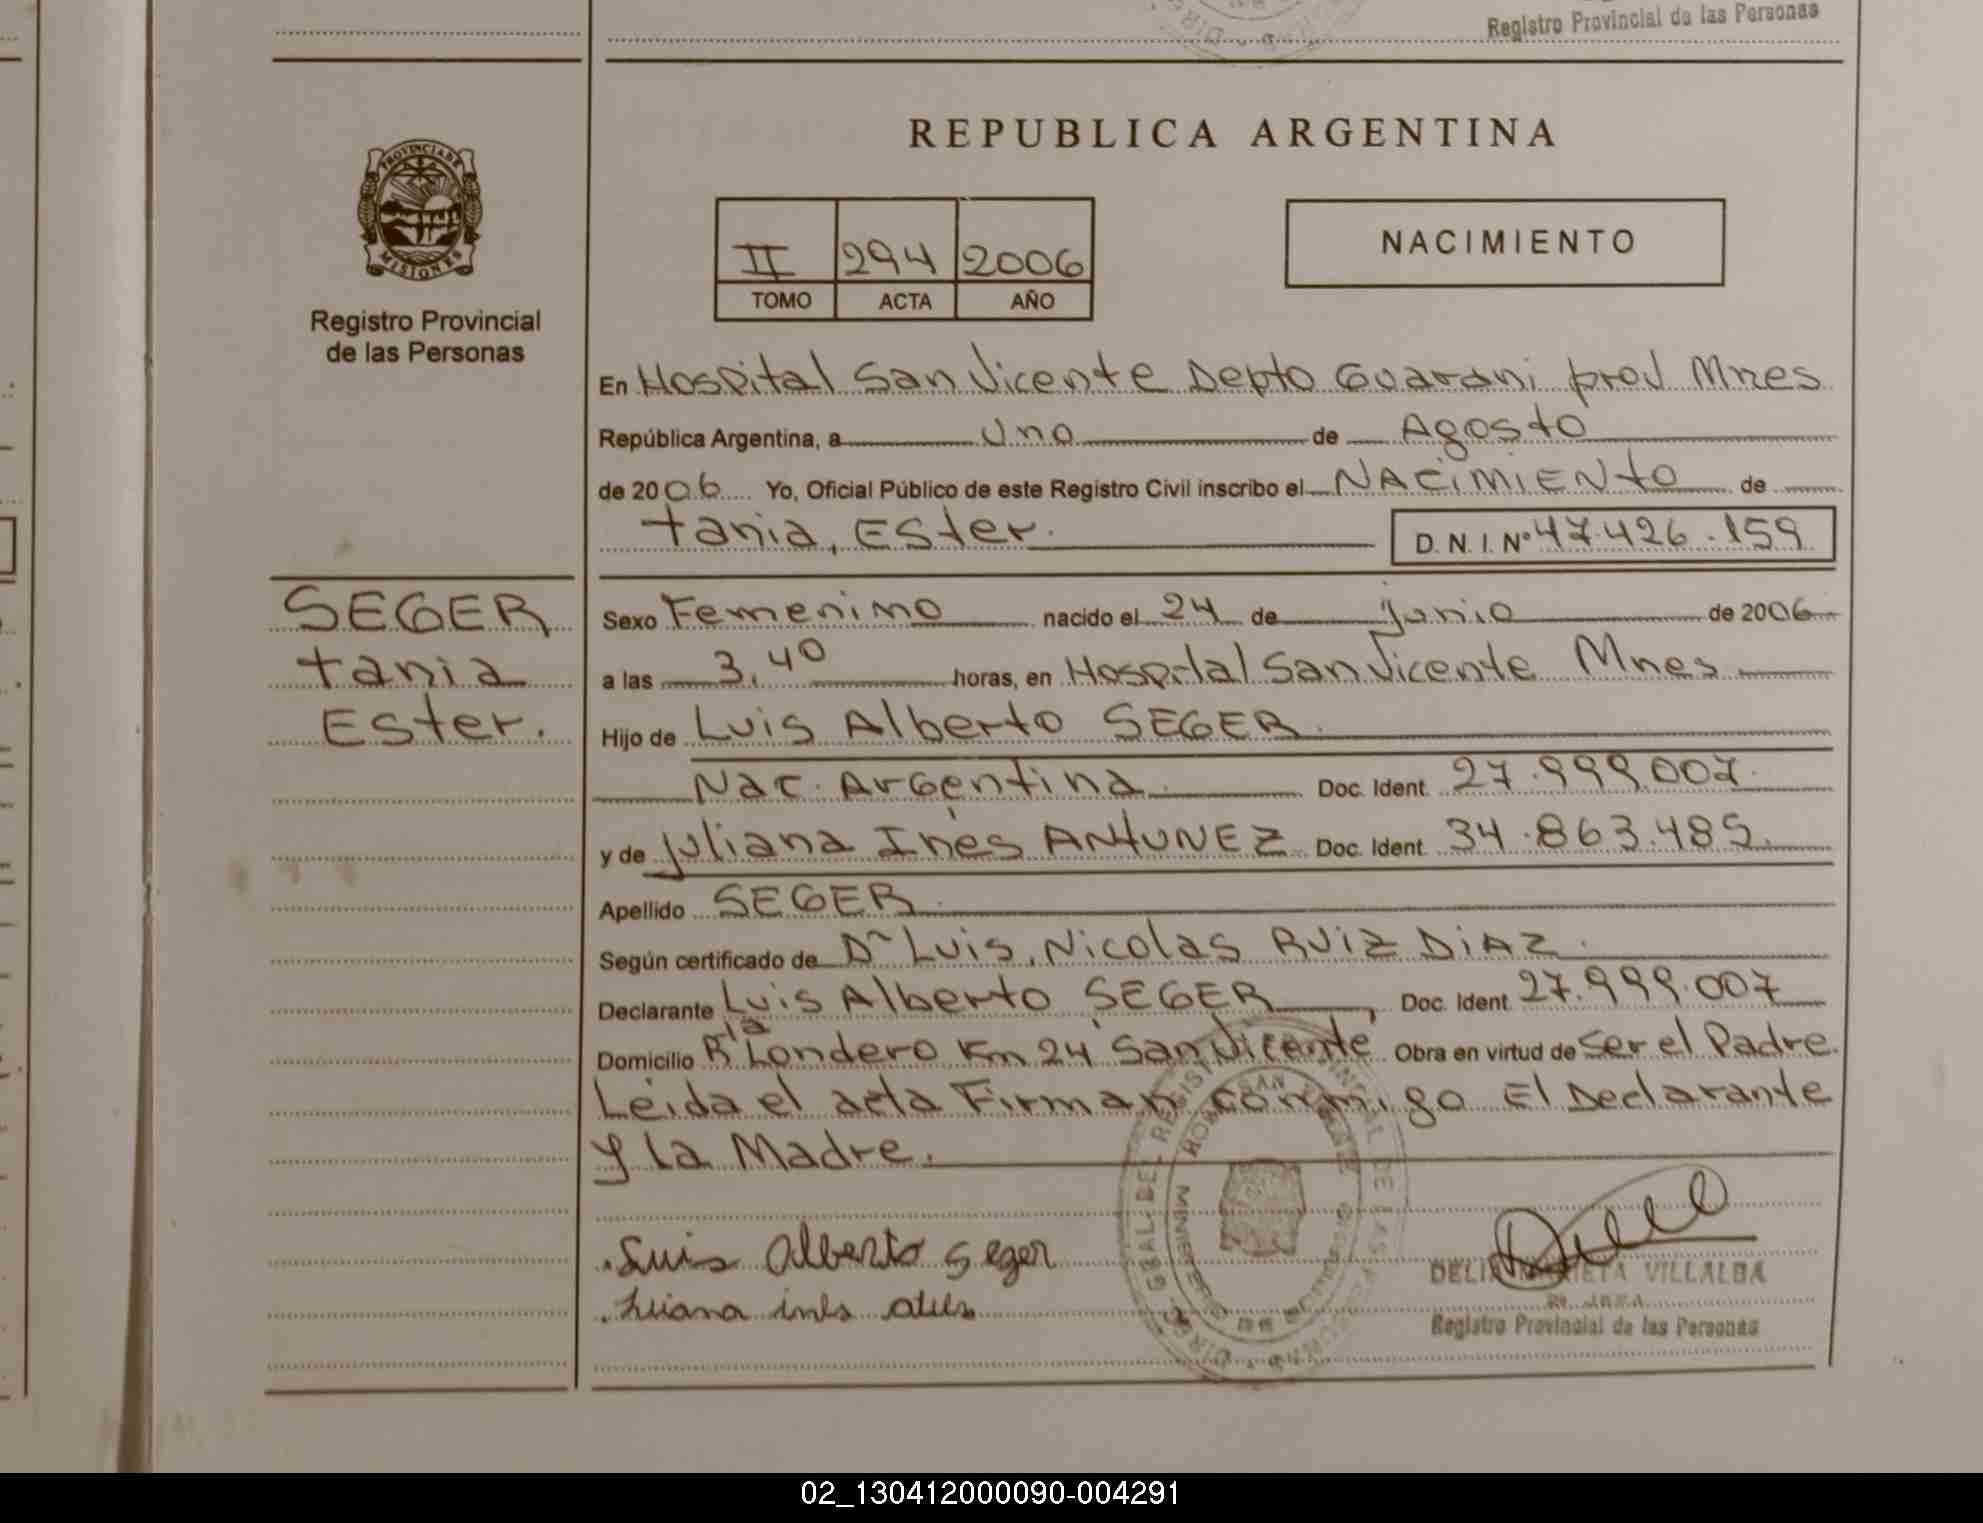 Registro Provincial de las Personas
REPUBLICA ARGENTINA
PROVINCIA DE
MISIONES
Registro Provincial
de las Personas
II 294 2006
TOMO ACTA AÑO
NACIMIENTO
En Hospital San Vicente Depto Guarani prov Mnes
República Argentina, a uno de Agosto
de 2006 Yo, Oficial Público de este Registro Civil inscribo el NACIMIENTO de
tania, Ester. D.N.I. Nº 47.426.159
SEGER
tania
Ester.
Sexo Femenino nacido el 24 de junio de 2006
a las 3,40 horas, en Hospital San Vicente Mnes
Hijo de Luis Alberto SEGER.
Nac. Argentina. Doc. Ident. 27.999.007.
y de Juliana Inés ANTUNEZ Doc. Ident. 34.863.485.
Apellido SEGER.
Según certificado de Dr Luis, Nicolas RUIZ DIAZ.
Declarante Luis Alberto SEGER, Doc. Ident. 27.999.007
Domicilio Rta Londero Km 24 San Vicente Obra en virtud de Ser el Padre.
Leida el acta Firman conmigo El Declarante
y la Madre.
Luis Alberto Seger
ines
VILLALBA
Registro Provincial de las Personas
02_130412000090-004291